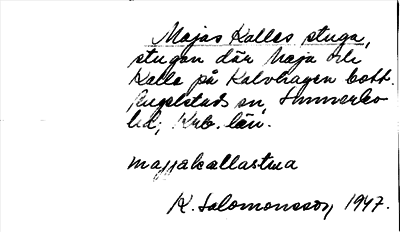 Majas Kalles stuga,
stugan där Maja och
Kalle på Kalvhagen bott.
Ryssby sn, Sunnerbo
hd, Krb. län.
majjakallastua
K. Salomonsson, 1947.